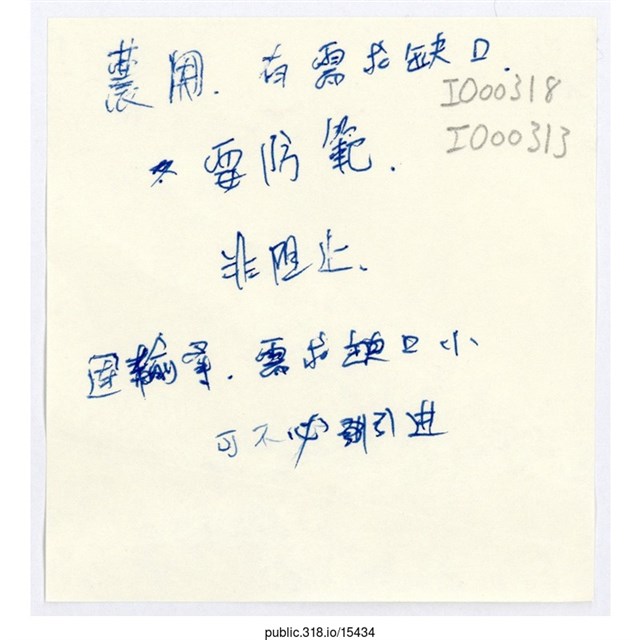 農用. 有需求缺口.
IO00318
IO00313
要防範.
非阻止.
運輸業. 需求缺口小
可不必引進
public.318.io/15434